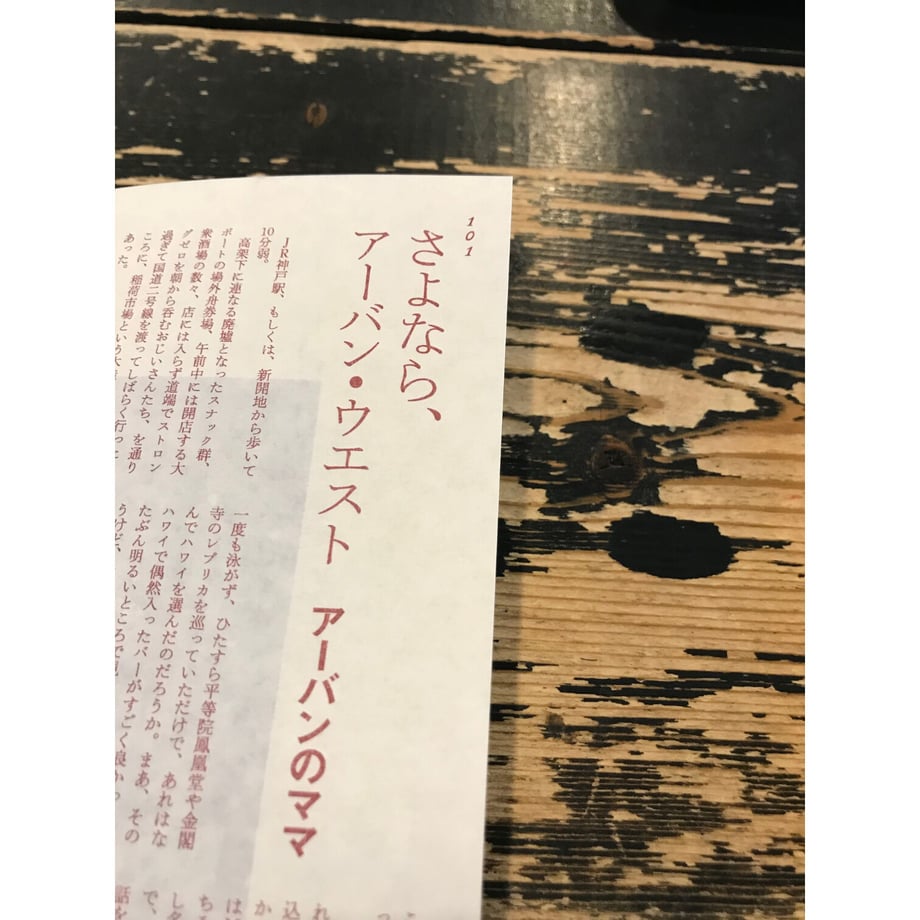 101
さよなら、
アーバン・ウエスト　アーバンのママ
JR神戸駅、もしくは、新開地から歩いて
10分弱。
高架下に連なる廃墟となったスナック群、
ボートの場外舟券場、午前中には開店する大
衆酒場の数々、店には入らず道端でストロン
グゼロを朝から呑むおじいさんたち、を通り
過ぎて国道二号線を渡ってしばらく行ったと
ころに、稲荷市場という大
あった。
一度も泳がず、ひたすら平等院鳳凰堂や金閣
寺のレプリカを巡っていただけで、あれはな
んでハワイを選んだのだろうか。まあ、その
ハワイで偶然入ったバーがすごく良かっ
たぶん明るいところで見
うけど、